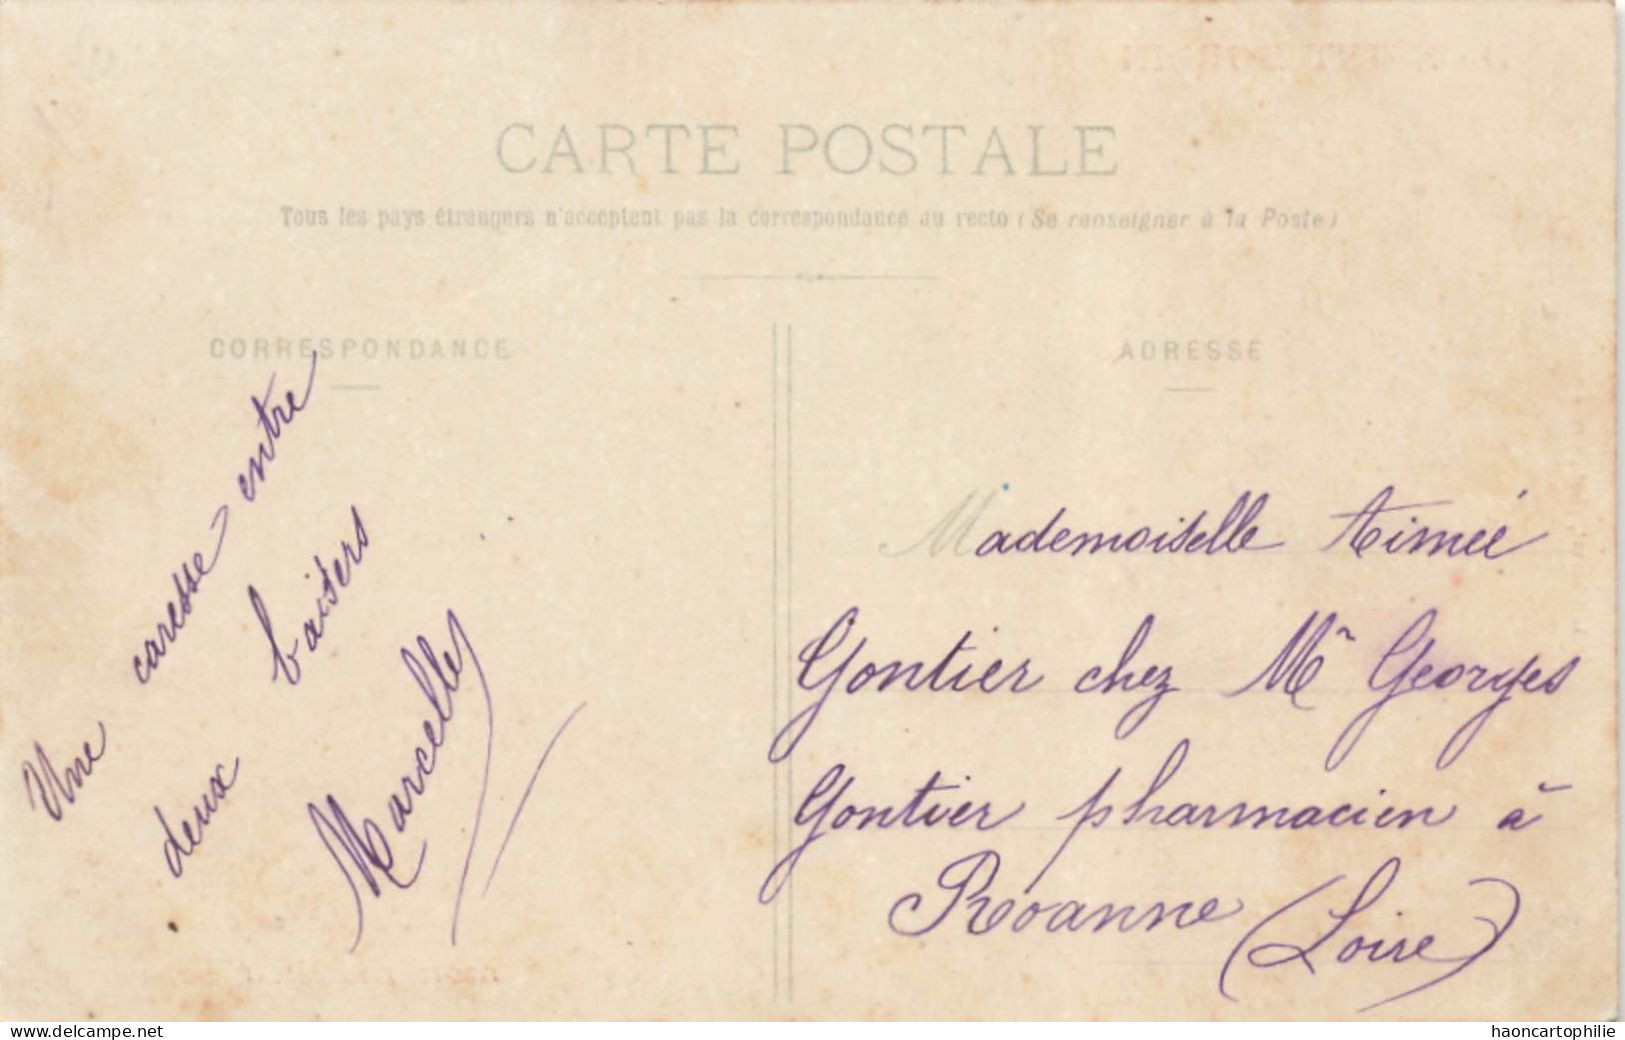 CARTE POSTALE
Tous les pays étrangers n'acceptent pas la correspondance au recto (Se renseigner à la Poste)
CORRESPONDANCE
Une caresse entre
deux baisers
Marcelle
ADRESSE
Mademoiselle Aimée
Gontier chez Mr Georges
Gontier pharmacien à
Roanne (Loire)
www.delcampe.net
haoncartophilie